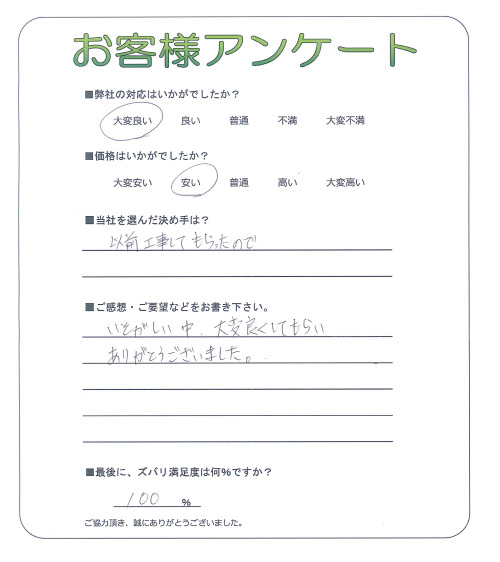 お客様アンケート
■弊社の対応はいかがでしたか？
大変良い 良い 普通 不満 大変不満
■価格はいかがでしたか？
大変安い 安い 普通 高い 大変高い
■当社を選んだ決め手は？
以前工事してもらったので
■ご感想・ご要望などをお書き下さい。
いそがしい中、大変良くしてもらい
ありがとうございました。
■最後に、ズバリ満足度は何％ですか？
100 ％
ご協力頂き、誠にありがとうございました。